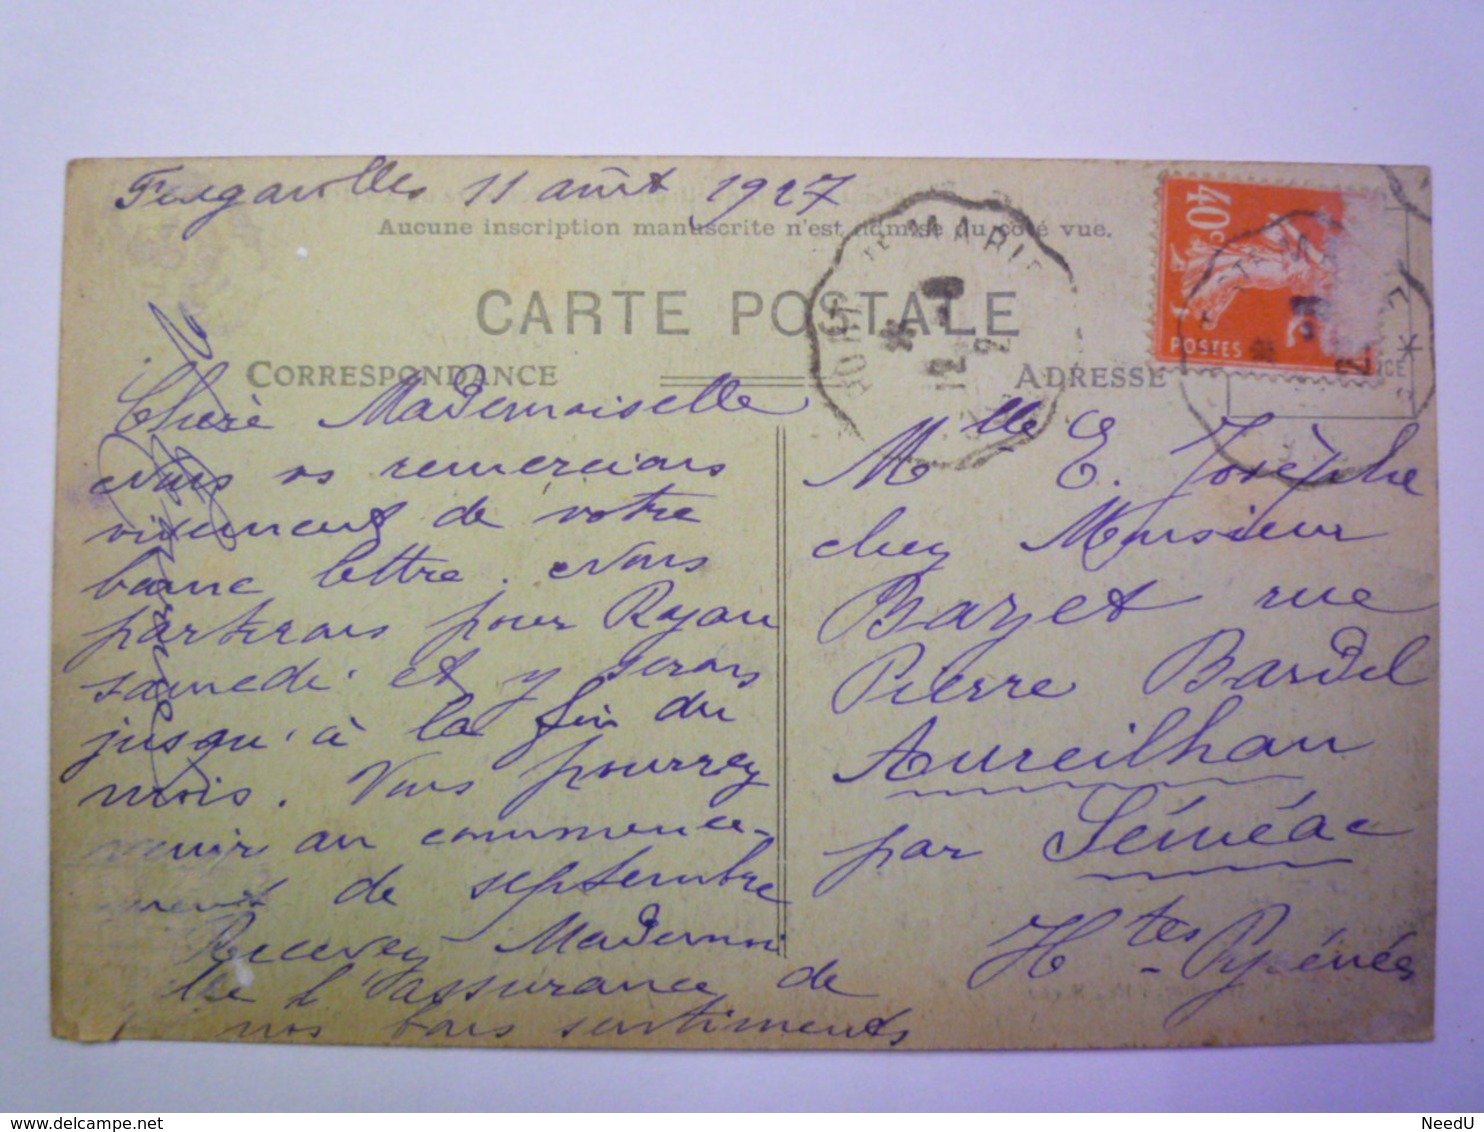 Feugarolles 11 août 1927
Aucune inscription manuscrite n'est admise du côté vue.
CARTE POSTALE
CORRESPONDANCE
ADRESSE
40c
POSTES
MARIE
12 - 8
2
Chère Mademoiselle
Nous vs remercions
vivement de votre
bonne lettre. Nous
partirons pour Royan
samedi et y serons
jusqu'à la fin du
mois. Vous pourrez
venir au commence-
ment de septembre
Recevez Mademoi
lle l'assurance de
nos bons sentiments
Mlle E. Josèphe
chez Monsieur
Bazet rue
Pierre Bardel
Aureilhan
par Séméac
Htes-Pyrénées
delcampe.net
NeedU